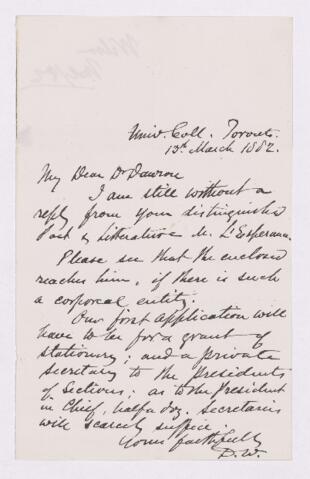 Univ. Coll. Toronto.
13th March 1882.
My Dear Dr Dawson
I am still without a
reply from your distinguished
Poet & Literateur M. L'Esperance.
Please see that the enclosed
reaches him, if there is such
a corporeal entity.
Our first application will
have to be for a grant of
stationery; and a private
secretary to the Presidents
of Sections; as to the President
in Chief, half a doz. secretaries
will scarcely suffice.
Yours faithfully
D. W.